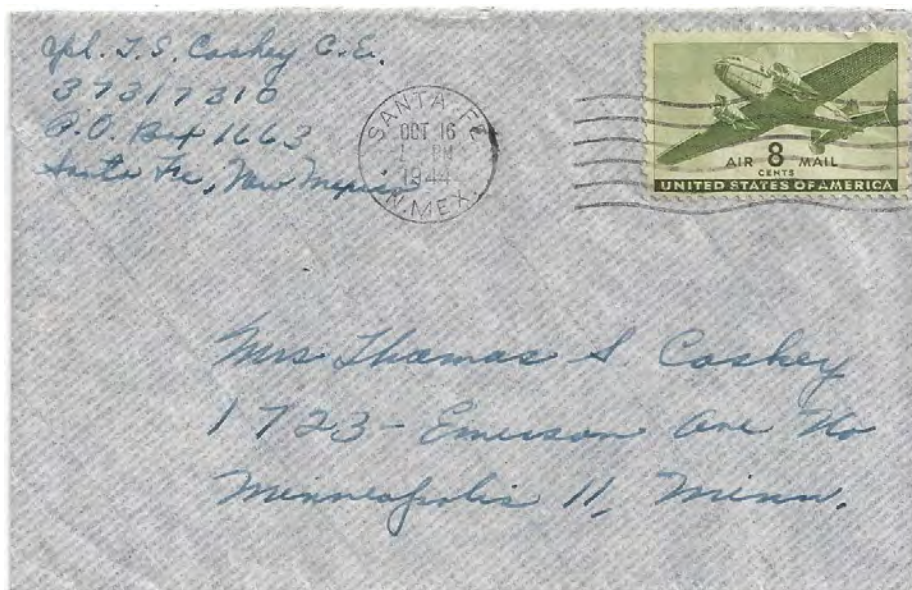 T.S. Coskey C.E.
37317310
P.O. Box 1663
Santa Fe, New Mexico
SANTA FE
OCT 16
PM
1944
N. MEX.
AIR 8 MAIL
CENTS
UNITED STATES OF AMERICA
Mrs Thomas S Coskey
1723 - Emerson Ave No
Minneapolis 11, Minn.